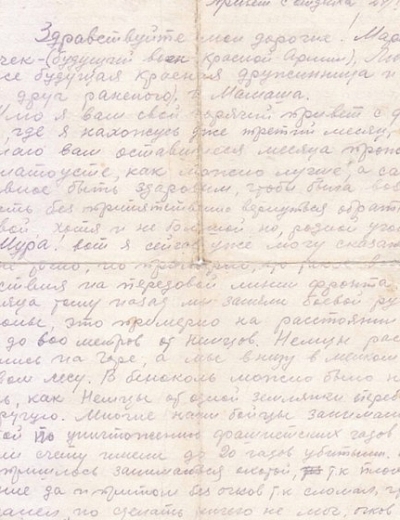 Привет с
Здравствуйте мои дорогие! Мар
чек-(будущий воин Красной Армии),
се будущая Красная дружинница и
друг раненого), и Мамаша.
Шлю я вам свой горячий привет с
, где я нахожусь уже третий месяц,
лаю вам оставшиеся месяца
латоусте, как можно лучше, а са
вное быть здоровым, чтобы была воз
сть беспрепятственно вернуться обрат
вой, хотя и не большой но, родной уго
Шура! вот я сейчас уже могу сказа
ствия на передовой линии фронта.
сяца тому назад мы заняли боевой ру
это примерно на расстоянии
до 800 метров от Немцов. Немцы рас
лись на горе, а мы внизу в мелком
вом лесу. В бинокль можно было на
ь, как Немцы из одной землянки
другую. Многие наши бойцы занимали
той по уничтожению фашистских гадов
ли счету имели до 20 гадов убитыми.
пришлось заниматься охотой, т.к
ние да и притом без очков т.к сломал,
но сделать ничего не мог, очков